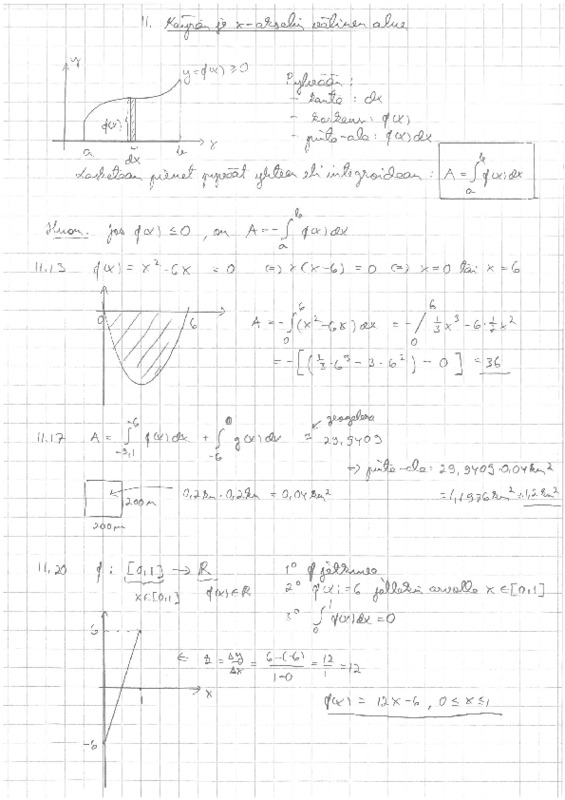 11. Käyrän ja x-akselin välinen alue
y
y=f(x) ≥ 0
f(x)
a dx b x
Pylvään:
- kanta: dx
- korkeus: f(x)
- pinta-ala: f(x)dx
Lasketaan pienet pylväät yhteen eli integroidaan: A = ∫_a^b f(x)dx
Huom. jos f(x) ≤ 0, on A = -∫_a^b f(x)dx
11.13 f(x) = x² - 6x = 0 (=) x(x-6) = 0 (=) x=0 tai x=6
0 6
A = -∫_0^6 (x²-6x)dx = -/_0^6 1/3 x³ - 6·1/2 x²
= -[(1/3·6³ - 3·6²) - 0] = 36
geogebra
11.17 A = ∫_{-3,1}^{-6} f(x)dx + ∫_{-6}^0 g(x)dx = 29,9409
→ pinta-ala: 29,9409·0,04km²
= 1,1976km² ≈ 1,2km²
200m
200m
0,2km · 0,2km = 0,04km²
11.20 f: [0,1] → R
x∈[0,1] f(x)∈R
1° f jatkuva
2° f(x)=6 jollakin arvolla x∈[0,1]
3° ∫_0^1 f(x)dx = 0
6
-6
1 x
k = Δy/Δx = 6-(-6)/1-0 = 12/1 = 12
f(x) = 12x-6, 0≤x≤1